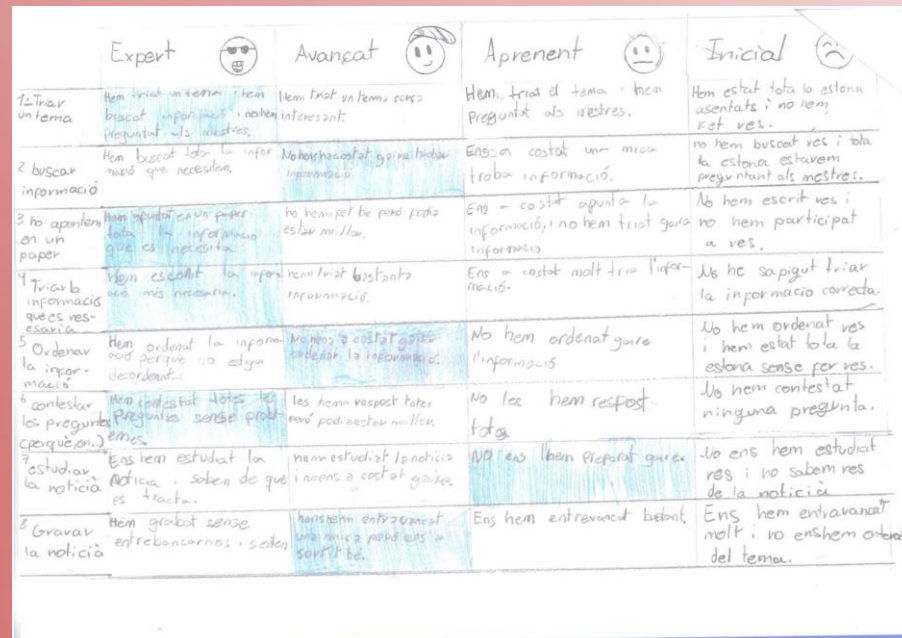 Expert
Avançat
Aprenent
Inicial
1- Triar
un tema
Hem triat un tema i hem
buscat informació i no hem
preguntat als mestres.
Hem triat un tema força
interesant.
Hem triat el tema i hem
preguntat als mestres.
Hem estat tota la estona
asentats i no hem
fet res.
2 buscar
informació
Hem buscat tota la infor
mació que necesitem.
No ens ha costat gaire trobar
informació.
Ens a costat una mica
troba informació.
no hem buscat res i tota
la estona estavem
preguntant als mestres.
3 ho apuntem
en un
paper
Hem apuntat en un paper
tota la informacio
que es necesita
ho hem fet be però podia
estar millor.
Ens a costat apunta la
informació, i no hem triat gaire
informacio
No hem escrit res i
no hem participat
a res.
4 Triar la
informació
que es nes-
esaria
Hem escollit la infor
ació més necesaria.
hem triat bastanta
informació.
Ens a costat molt tria l'infor-
mació.
No he sapigut triar
la informacio correcta.
5 Ordenar
la infor-
mació
Hem ordenat la inform-
ació perquè no estgui
desordenat.
No ens a costat gaire
ordenar la informació.
No hem ordenat gaire
l'informació
No hem ordenat res
i hem estat tota la
estona sense fer res.
6 contestar
les preguntes
(perquè, on..)
Hem contestat totes les
preguntes sense probl-
emes.
les hem respost totes
però podin estar millor.
No les hem respost
totes
No hem contestat
ninguna pregunta.
7
estudiar
la noticià
Ens hem estudiat la
Noticia i sabem de que
es tracta.
hem estudiat la noticia
i no ens a costat gaire.
NO ens l'hem preparat gaire.
No ens hem estudiat
res i no sabem res
de la noticià
8 Gravar
la noticià
Hem grabat sense
entrebancarnos i
ens hem entravancat
una mica però ens a
sortit bé.
Ens hem entrevancat bastant.
Ens hem entravancat
molt i no ens hem
del tema.